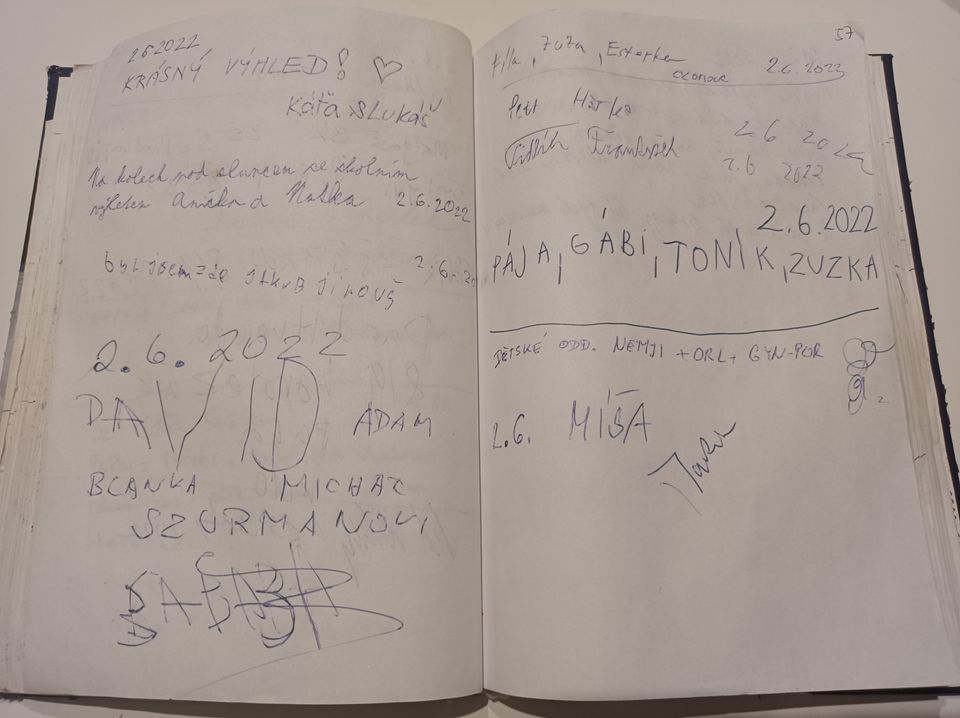 2.6.2022
KRÁSNÝ VÝHLED! ♡
KÁŤA SLUKÁŠ
Na kolech pod sluncem se školním
výletem Anička a 2.6.2022
byl jsem zde JAKUB JIROUŠ 2.6.20
2.6.2022
DAVID ADAM
BLANKA MICHAL
SZURMANOVI
57
Zuza, Esterka
Olomouc 2.6.2022
Petr
2.6 2022
František 2.6 2022
2.6.2022
PÁJA, GÁBI, TONÍK, ZUZKA
DĚTSKÉ ODD. NEMJI + ORL + GYN-POR
2.6. MÍŠA